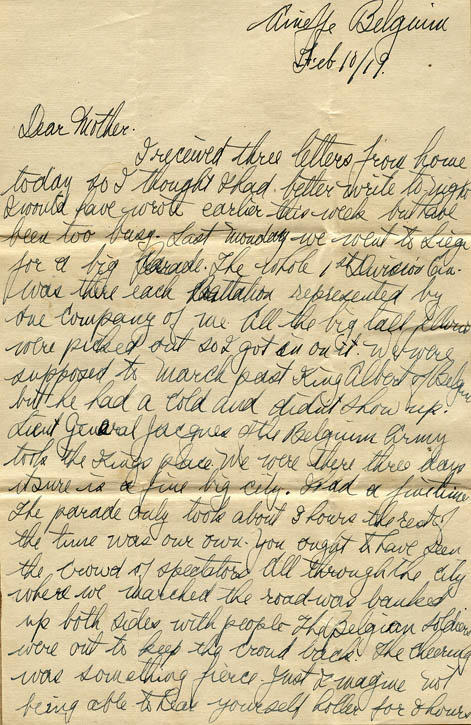 Aineffe Belguim
Feb 10/19.
Dear Mother.
I received three letters from home
today so I thought I had better write to-night
I would have wrote earlier this week but have
been too busy. Last Monday we went to Liege
for a big Parade. The whole 1st Division Can.
was there each Battalion represented by
one company of me. All the big tall fellows
were picked out so I got in on it. We were
supposed to march past King Albert of Belgium
but he had a cold and didn't show up.
Lieut General Jacques of the Belguim Army
took the Kings place. We were there three days
it sure is a fine big city. I had a fine time
The parade only took about 3 hours the rest of
the time was our own. You ought to have seen
the crowd of spectators all through the city
where we marched the road was banked
up both sides with people The Belgian soldiers
were out to keep the crowd back. The cheering
was something fierce. Just imagine not
being able to hear yourself holler for hours